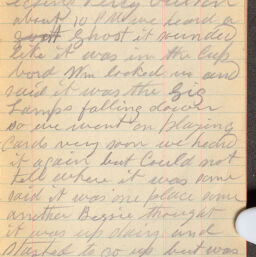 about 10 P.M. we heard a
Ghost it sounded
like it was in the Cup
bord Wm looked in and
said it was the Gig
Lamps falling down
so we went on playing
Cards very soon we heard
it again but Could not
tell where it was some
said it was one place some
another Bessie thought
it was up stairs and
started to go up but was